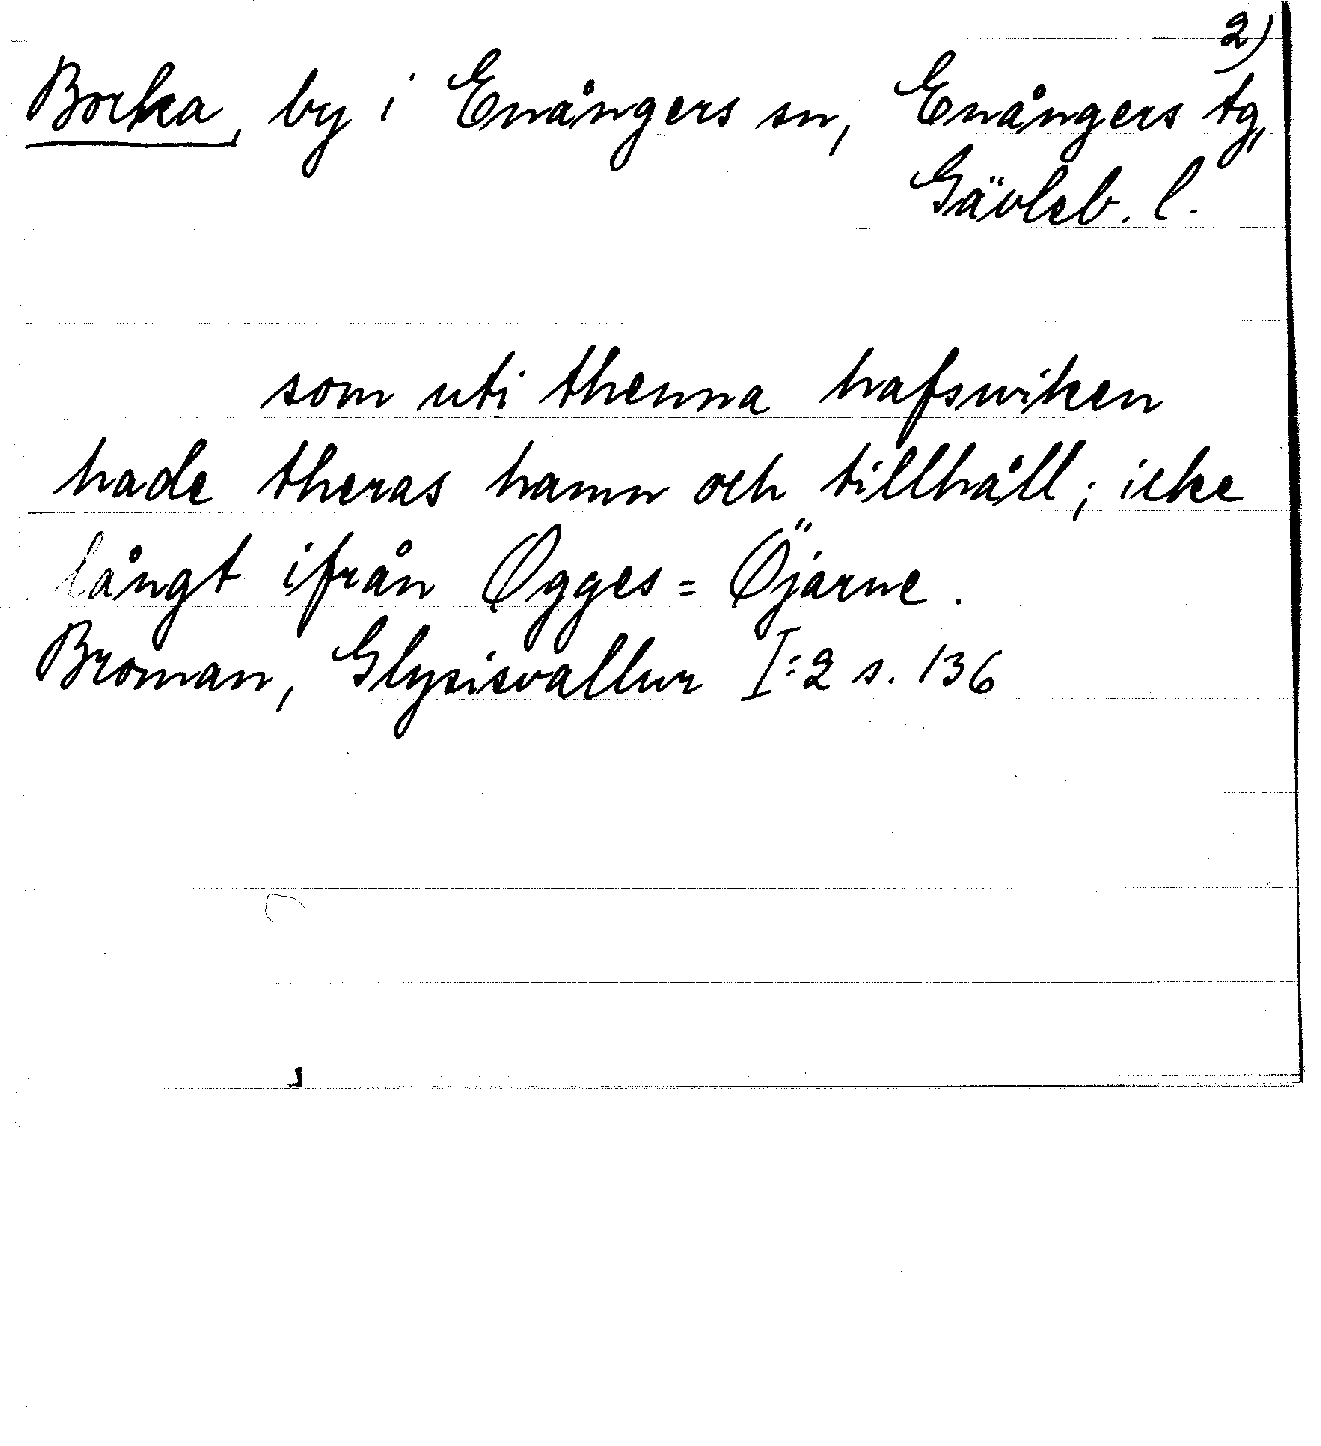 2)
Borka, by i Enångers sn, Enångers tg,
Gävleb. l.
som uti thenna hafswiken
hade theras hamn och tillhåll; icke
långt ifrån Øgges= Öjarne.
Broman, Glysisvallur I:2 s. 136